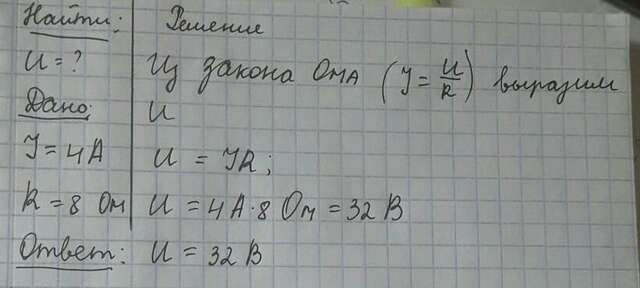 Найти: Решение
U = ? Из закона Ома (I = U/R) выразим
Дано: U
I = 4 А U = IR;
R = 8 Ом U = 4 А · 8 Ом = 32 В
Ответ: U = 32 В